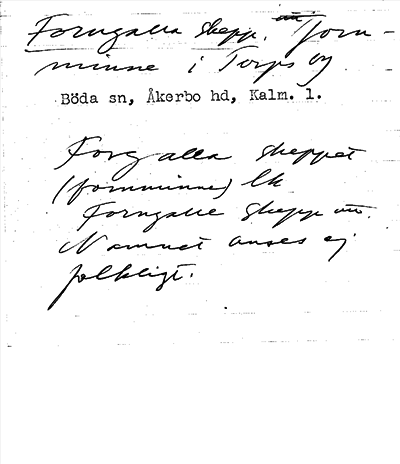 Forngalla skepp, forn-
minne i Torps by
Böda sn, Åkerbo hd, Kalm. l.
Forgalla skeppet
(fornminne) lk
Forngalle skepp
Namnet anses ej
folkligt.